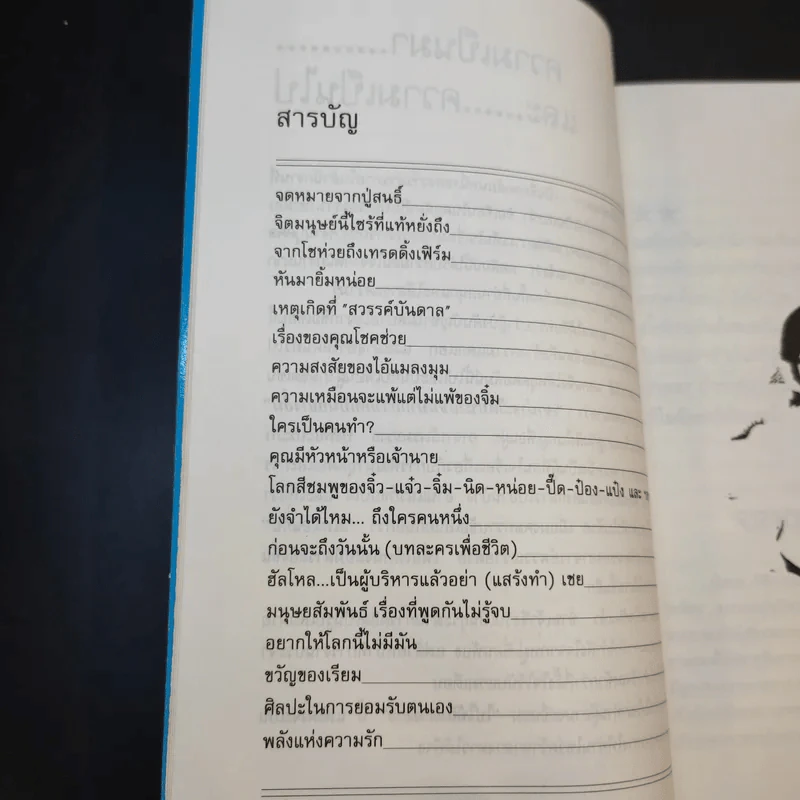 สารบัญ
จดหมายจากปู่สนธิ์
จิตมนุษย์นี้ไซร้ที่แท้หยั่งถึง
จากโชห่วยถึงเทรดดิ้งเฟิร์ม
หันมายิ้มหน่อย
เหตุเกิดที่ "สวรรค์บันดาล"
เรื่องของคุณโชคช่วย
ความสงสัยของไอ้แมลงมุม
ความเหมือนจะแพ้แต่ไม่แพ้ของจิ๋ม
ใครเป็นคนทำ?
คุณมีหัวหน้าหรือเจ้านาย
โลกสีชมพูของจิ๋ว-แจ๋ว-จิ๋ม-นิด-หน่อย-ปื๊ด-ป๋อง-แป๋ง และ
ยังจำได้ไหม... ถึงใครคนหนึ่ง
ก่อนจะถึงวันนั้น (บทละครเพื่อชีวิต)
ฮัลโหล...เป็นผู้บริหารแล้วอย่า (แสร้งทำ) เชย
มนุษยสัมพันธ์ เรื่องที่พูดกันไม่รู้จบ
อยากให้โลกนี้ไม่มีมัน
ขวัญของเรียม
ศิลปะในการยอมรับตนเอง
พลังแห่งความรัก